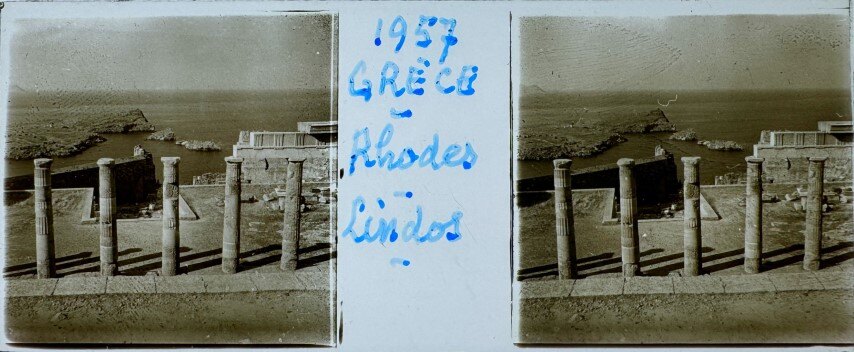 1957
GRËCE
Rhodes
Lindos